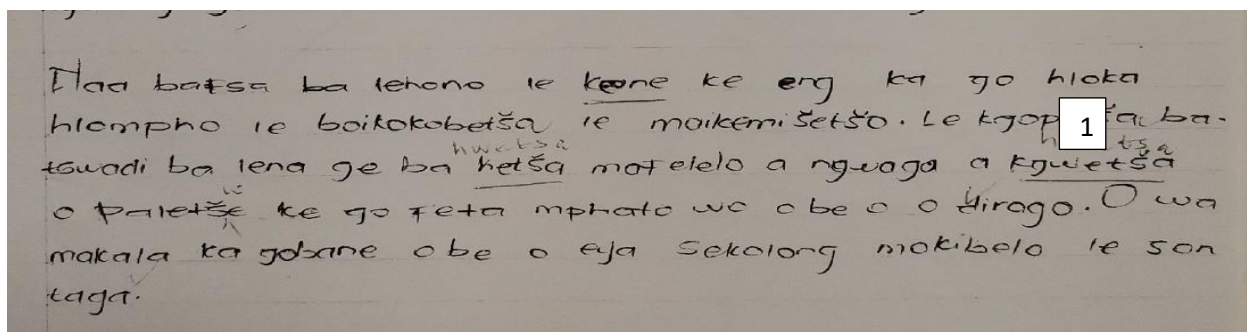 Naa bafsa ba lehono le keone ke eng ka go hloka
hlompho le boikokobetša le maikemišetšo. Le kgop 1 ša ba-
hwetša
tswadi ba lena ge ba hetša matelelo a ngwaga a kgwetša
o paletše ke go feta mphato wo o be o o dirago. O wa
makala ka gobane o be o eja sekolong mokibelo le son
taga.